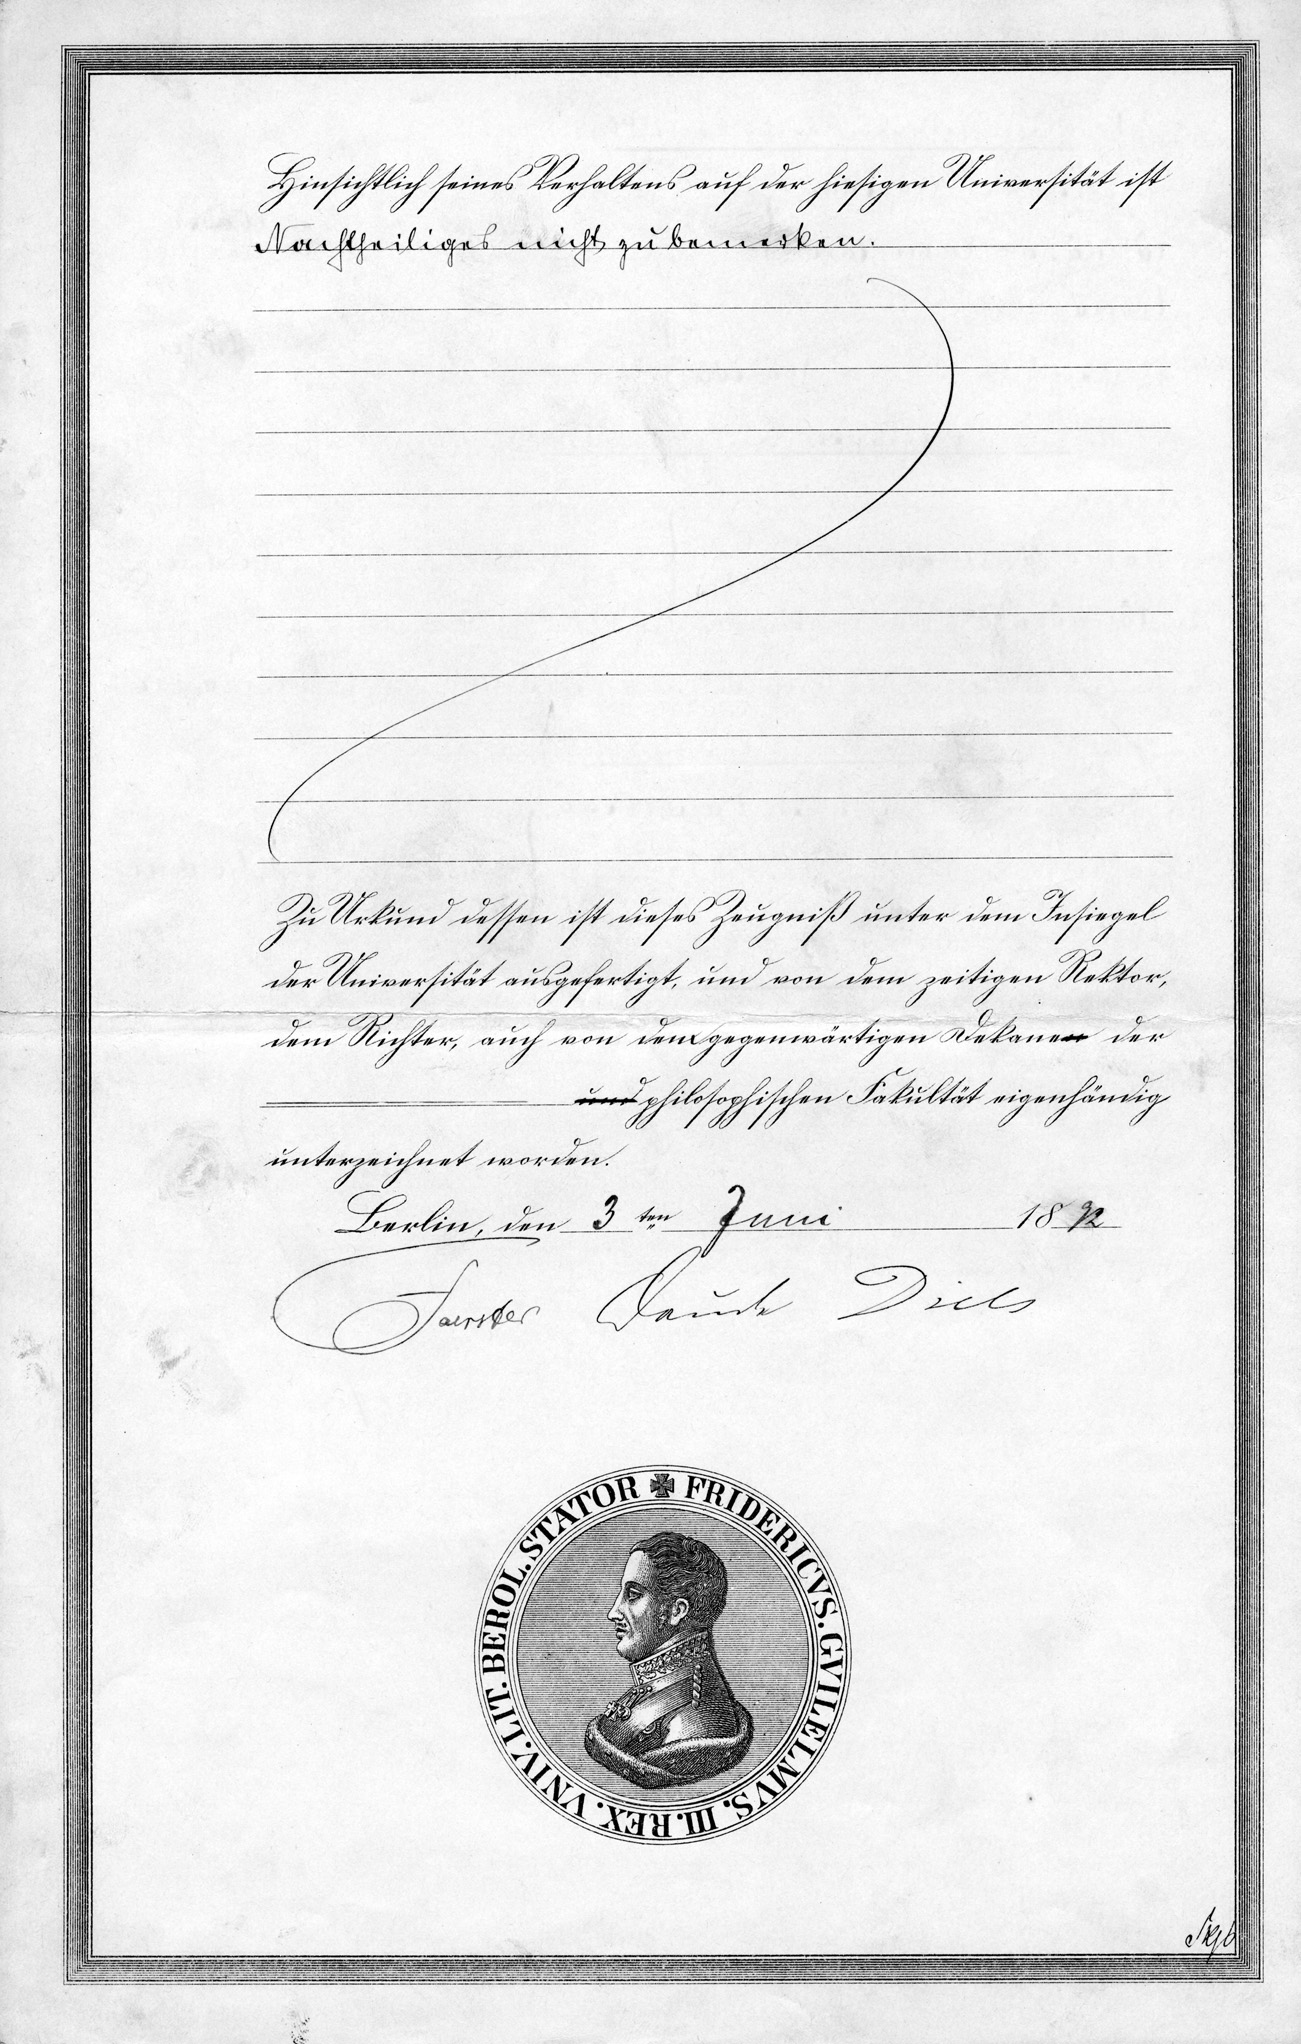 Hinsichtlich seines Verhaltens auf der hiesigen Universität ist
Nachtheiliges nicht zu bemerken.
Zu Urkund dessen ist dieses Zeugniß unter dem Insiegel
der Universität ausgefertigt, und von dem zeitigen Rektor,
dem Richter, auch von dem gegenwärtigen Dekanen der
und philosophischen Fakultät eigenhändig
unterzeichnet worden.
Berlin, den 3 ten Juni 1892
Foerster Daude Diels
FRIDERICVS. GVILELMVS. III. REX. VNIV. LIT. BEROL. STATOR